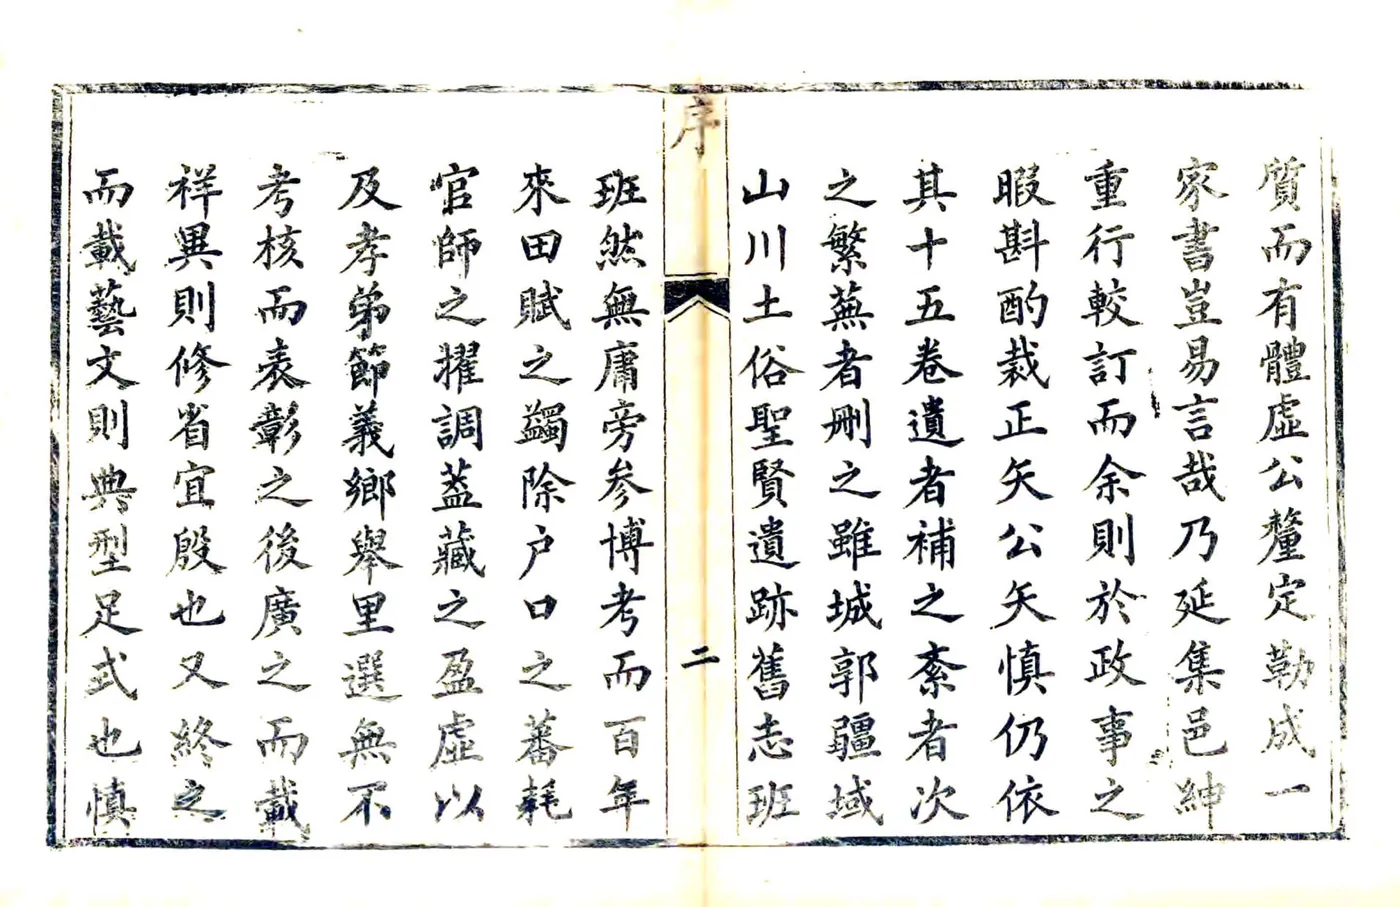 質而有體虛公釐定勒成一
家書豈易言哉乃延集邑紳
重行較訂而余則於政事之
暇斟酌裁正矢公矢慎仍依
其十五卷遺者補之紊者次
之繁蕪者刪之雖城郭疆域
山川土俗聖賢遺跡舊志班
序
二
班然無庸旁參博考而百年
來田賦之蠲除户口之蕃耗
官師之擢調蓋藏之盈虛以
及孝弟節義鄉舉里選無不
考核而表彰之後廣之而載
祥異則修省宜殷也又終之
而載藝文則典型足式也慎